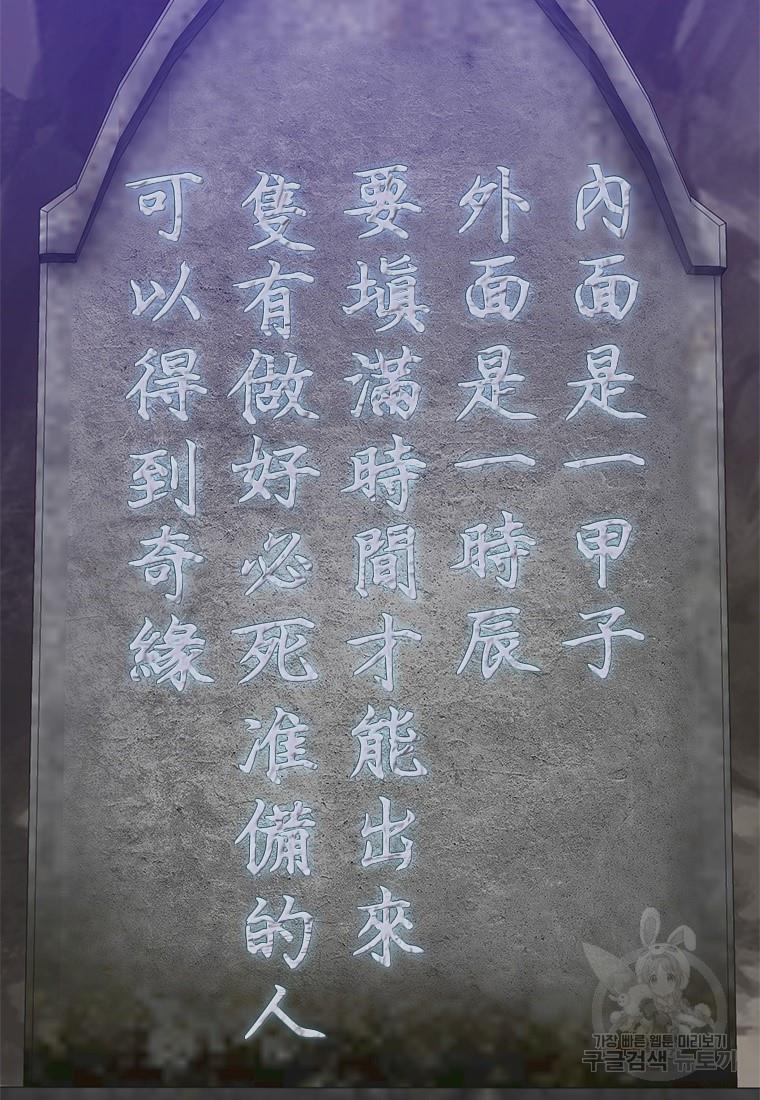 內面是一甲子
外面是一時辰
要填滿時間才能出來
隻有做好必死准備的人
可以得到奇緣
가장 빠른 웹툰 미리보기
구글검색 뉴토끼